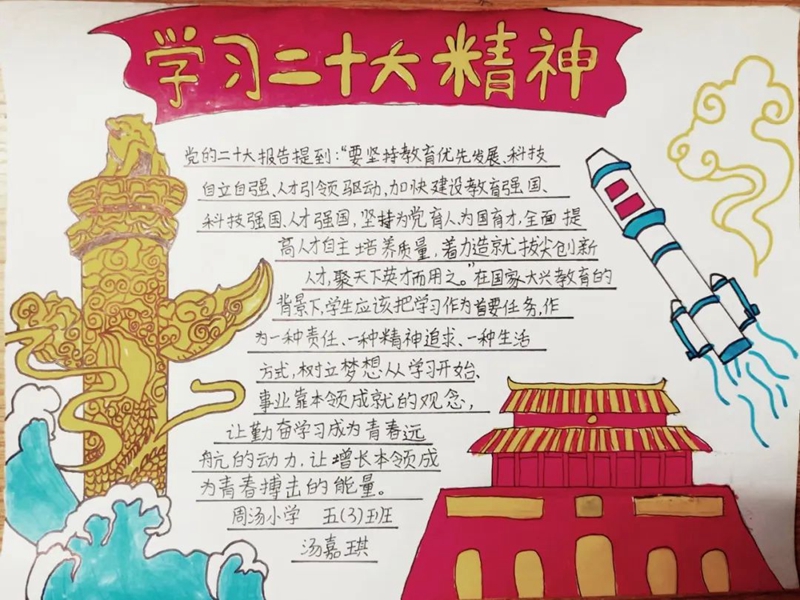 学习二十大精神
党的二十大报告提到:“要坚持教育优先发展、科技
自立自强、人才引领驱动,加快建设教育强国、
科技强国、人才强国,坚持为党育人、为国育才,全面提
高人才自主培养质量,着力造就拔尖创新
人才,聚天下英才而用之。”在国家大兴教育的
背景下,学生应该把学习作为首要任务,作
为一种责任、一种精神追求、一种生活
方式,树立梦想从学习开始、
事业靠本领成就的观念,
让勤奋学习成为青春远
航的动力,让增长本领成
为青春搏击的能量。
周汤小学 五(3)班
汤嘉琪